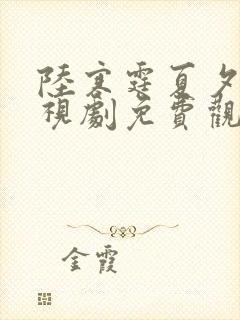 陸寒霆夏夕
視劇免費觀
金霞